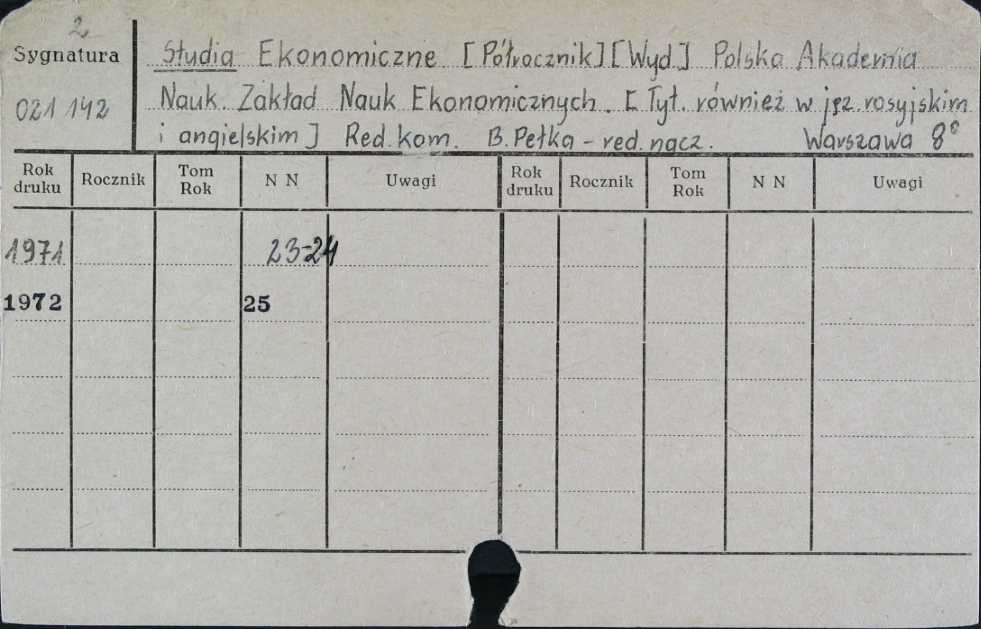 2
Sygnatura
021 142
Studia Ekonomiczne [Półrocznik] [Wyd.] Polska Akademia
Nauk. Zakład Nauk Ekonomicznych. [Tyt. również w jęz. rosyjskim
i angielskim] Red. kom. B. Pełka - red. nacz. Warszawa 8°
Rok druku Rocznik Tom Rok N N Uwagi Rok druku Rocznik Tom Rok N N Uwagi
1971 23-24
1972 25